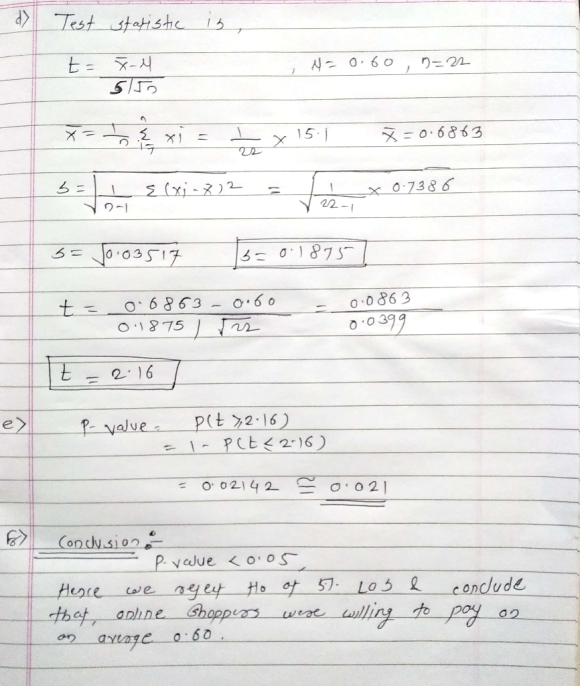 d> Test statistic is,
t = x̄-μ / s/√n , μ = 0.60 , n=22
x̄ = 1/n Σ xi = 1/22 × 15.1 x̄ = 0.6863
s = √(1/n-1 Σ(xi-x̄)2) = √(1/22-1 × 0.7386)
s = √0.03517 s = 0.1875
t = 0.6863 - 0.60 / 0.1875 / √22 = 0.0863 / 0.0399
t = 2.16
e> P-value = P(t ≥ 2.16)
= 1 - P(t ≤ 2.16)
= 0.02142 ≅ 0.021
f> Conclusion :-
P-value < 0.05,
Hence we reject Ho at 5%. LOS & conclude
that, online shoppers were willing to pay on
an average 0.60.